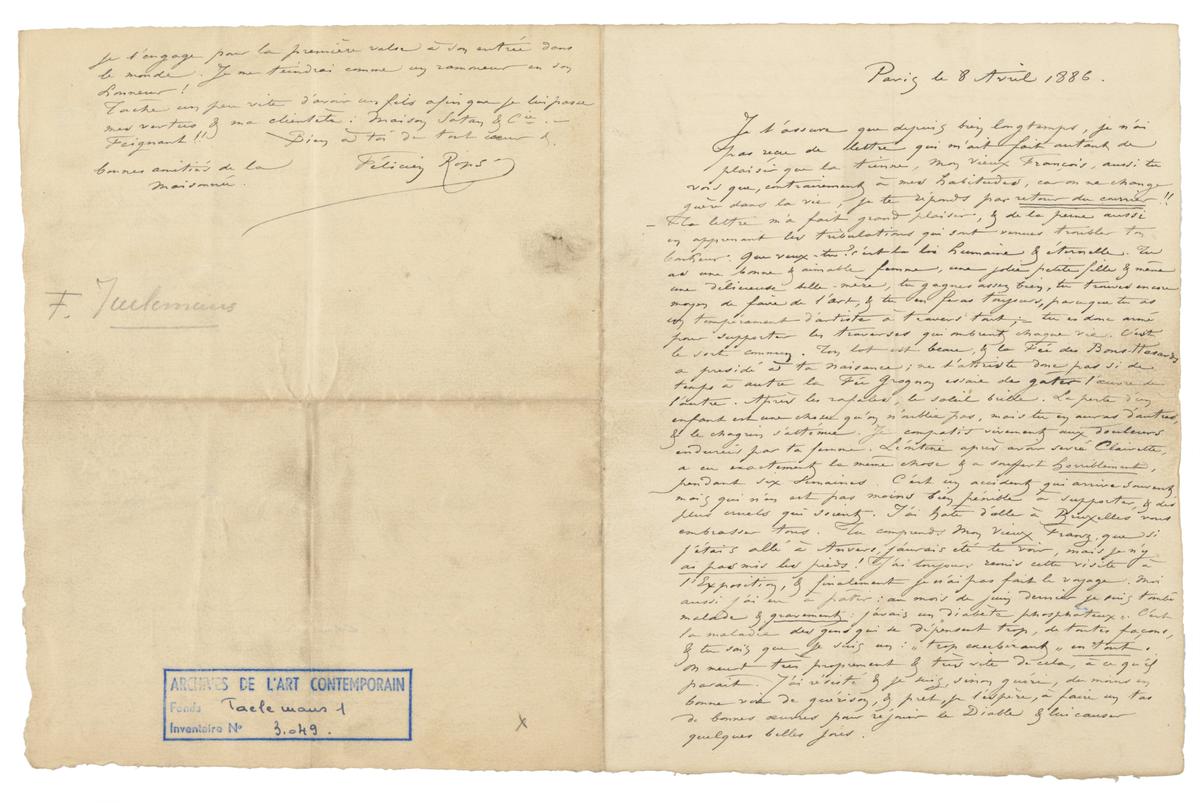 Je l'engage pour la première valse à son entrée dans
le monde. Je me teindrai comme un ramoneur en son
honneur !
Tache un peu vite d'avoir un fils afin que je lui passe
mes vertus & ma clientèle : Maison Satan & Cie. –
Feignant !! Bien à toi de tout cœur &
bonnes amitiés de la
maisonnée.
Félicien Rops
F. Taelemans
ARCHIVES DE L'ART CONTEMPORAIN
Fonds Taelemans 1
Inventaire N° 3.049.
X
Paris le 8 Avril 1886.
Je t'assure que depuis bien longtemps, je n'ai
pas reçu de lettre qui m'ait fait autant de
plaisir que la tienne, mon vieux François, aussi tu
vois que, contrairement à mes habitudes, car on ne change
guère dans la vie, je te réponds par retour du courrier !!
– Ta lettre m'a fait grand plaisir, & de la peine aussi
en apprenant les tribulations qui sont venues troubler ton
bonheur. Que veux-tu ? c'est la loi humaine & éternelle. Tu
as une bonne & aimable femme, une jolie petite fille & même
une délicieuse belle-mère, tu gagnes assez bien, tu trouves encore
moyen de faire de l'art, & tu en feras toujours, parce que tu as
un tempérament d'artiste à travers tout ; – tu es donc armé
pour supporter les traverses qui ombrent chaque vie. C'est
le sort commun. Ton lot est beau, & la Fée des Bons Hasards
a présidé à ta naissance ; ne t'attriste donc pas si de
temps à autre la Fée Grognon essaie de gâter l'œuvre de
l'autre. Après les rafales, le soleil brille. La perte d'un
enfant est une chose qu'on n'oublie pas, mais tu en auras d'autres,
& le chagrin s'atténue. Je compatis vivement aux douleurs
endurées par ta femme. Léontine après avoir sevré Clairette,
a eu exactement la même chose & a souffert horriblement,
pendant six semaines. C'est un accident qui arrive souvent
mais qui n'en est pas moins bien pénible à supporter, & des
plus cruels qui soient. J'ai hâte d'aller à Bruxelles vous
embrasser tous. Tu comprends mon vieux Franz, que si
j'étais allé à Anvers, j'aurais été te voir, mais je n'y
ai pas mis les pieds ! J'ai toujours remis cette visite à
l'Exposition, & finalement je n'ai pas fait le voyage. Moi
aussi j'ai eu à pâtir : au mois de juin dernier je suis tombé
malade & gravement : j'avais un „diabète phosphateux„. C'est
la maladie des gens qui se dépensent trop, de toutes façons,
& tu sais que je suis un : „trop exubérant„ en tout.
On meurt très proprement & très vite de cela, à ce qu'il
parait. J'ai résisté & je suis, sinon guéri, du moins en
bonne voie de guérison, & prêt je l'espère, à faire un tas
de bonnes œuvres pour réjouir le Diable & lui causer
quelques belles joies.